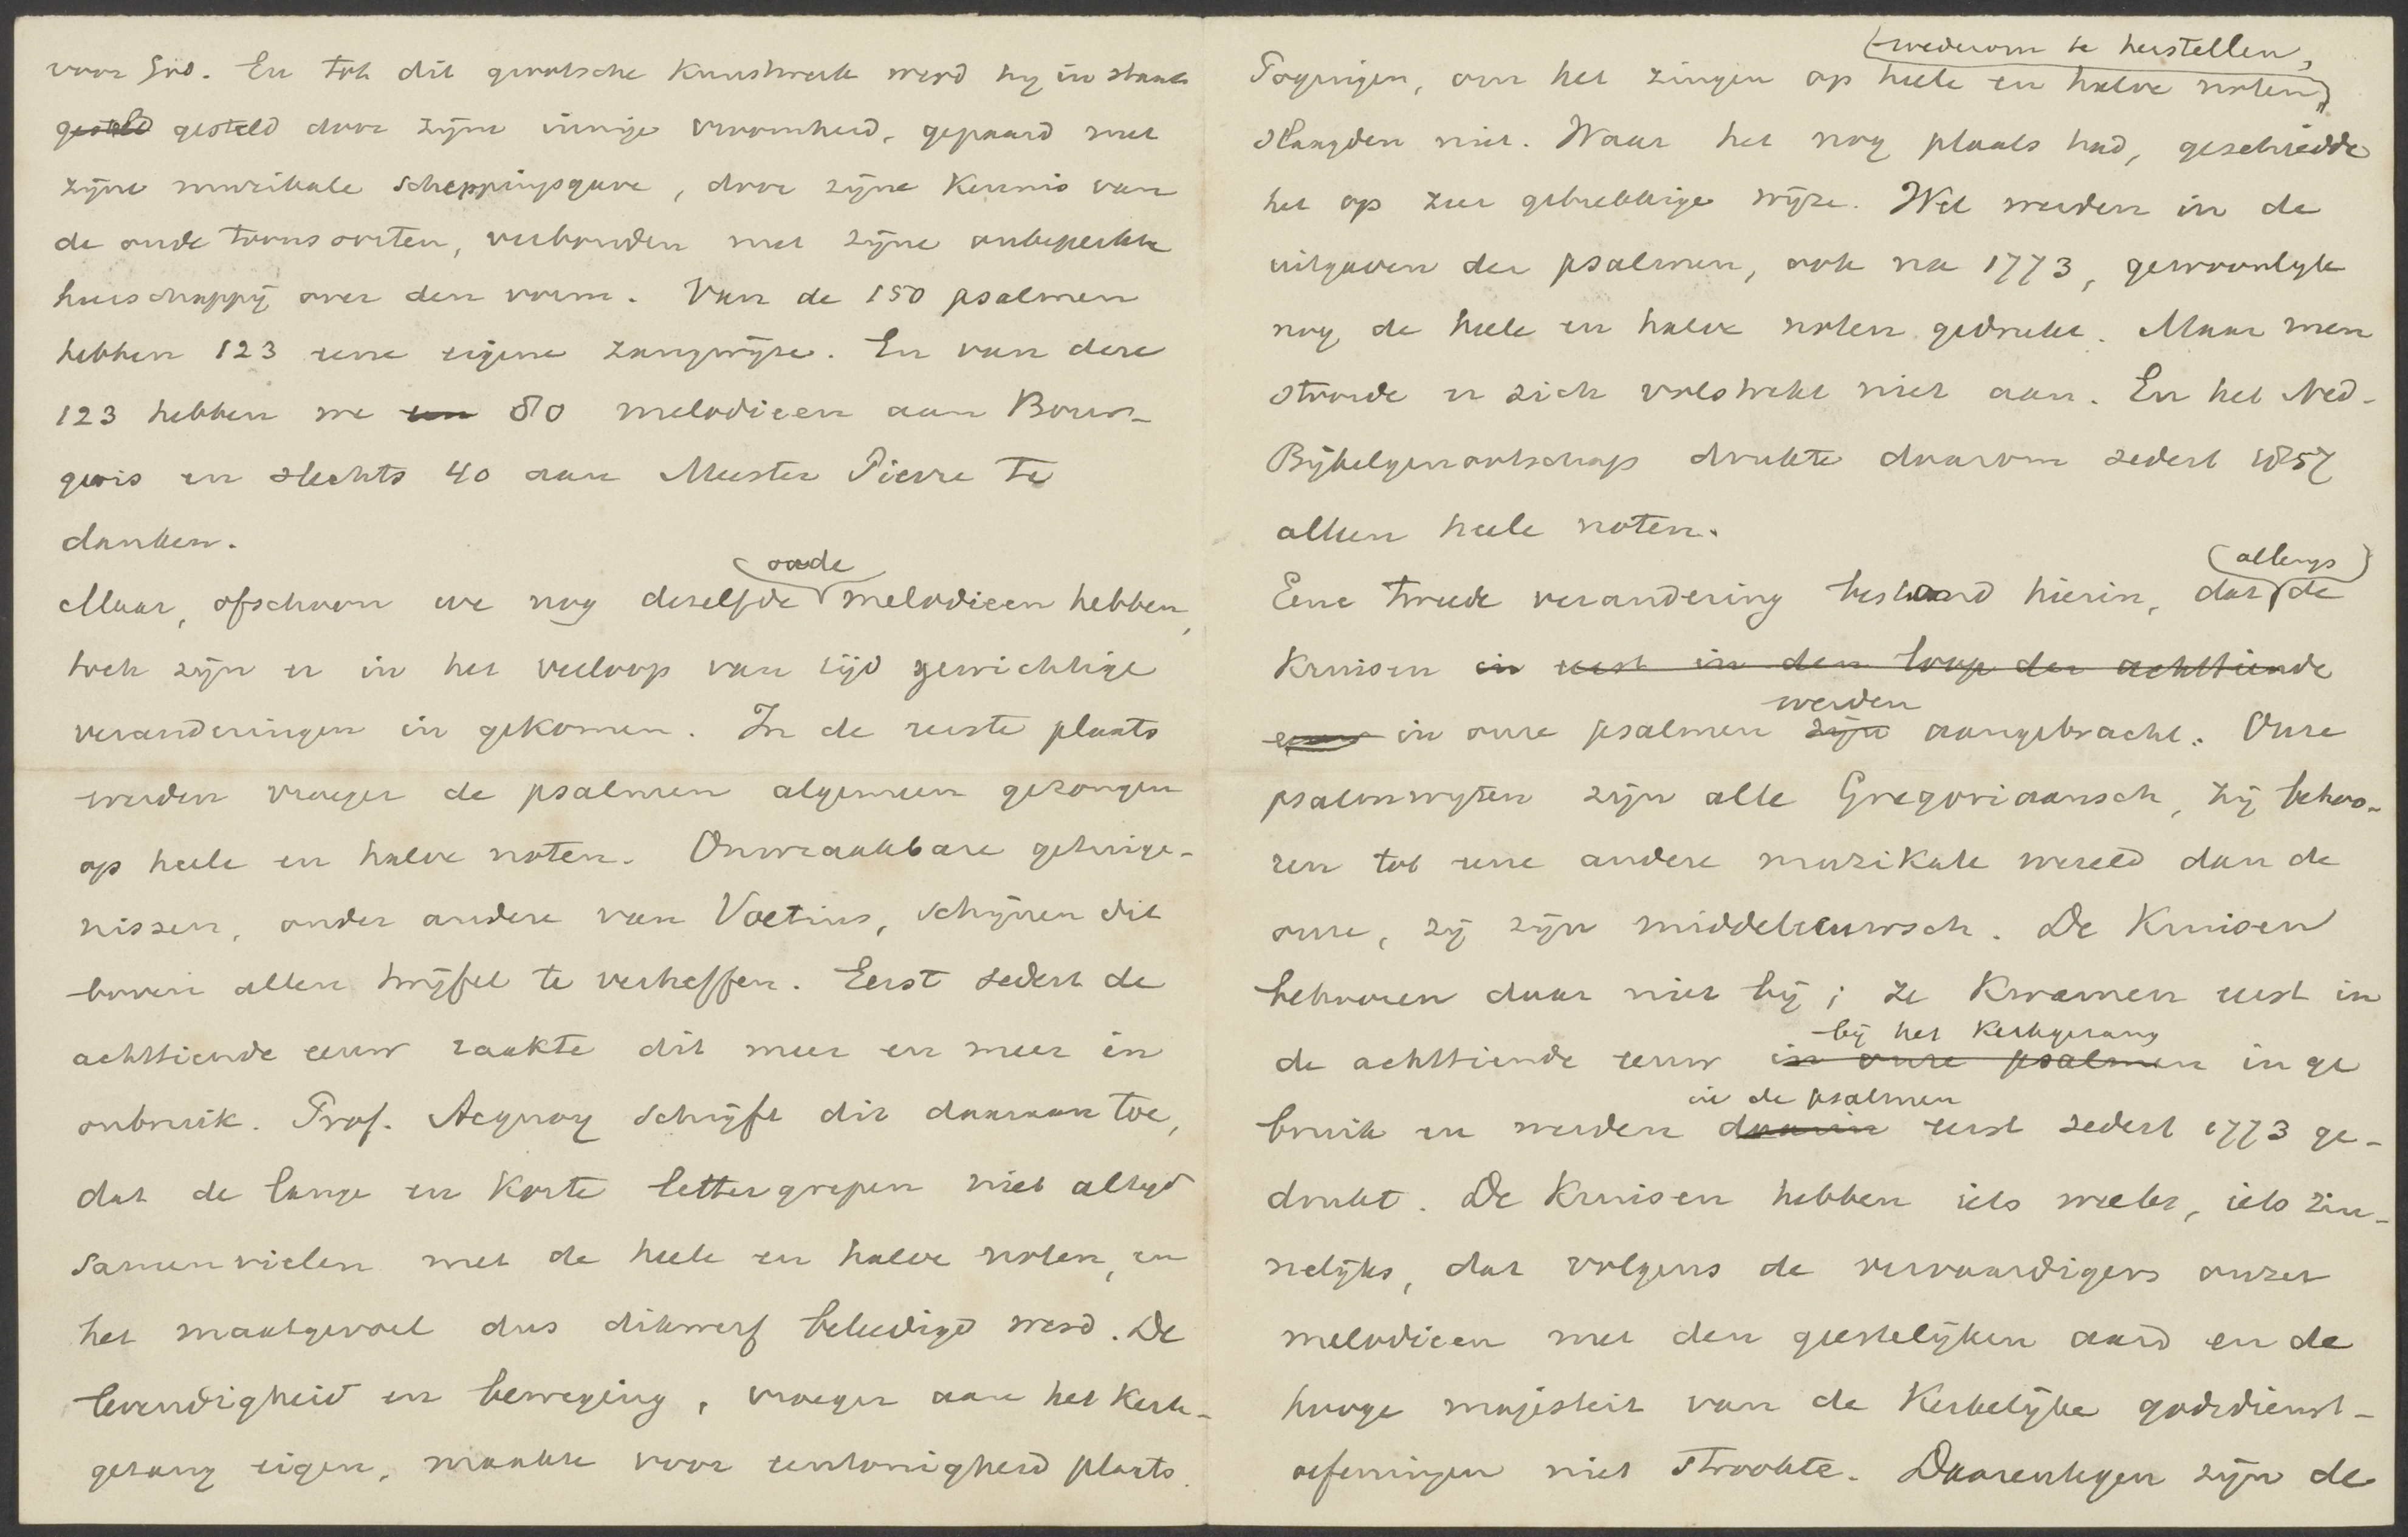 voor God. En tot dit grootsche kunstwerk werd hij in staat
gesteld gesteld door zijne innige vroomheid, gepaard met
zijne muzikale scheppingsgave, door zijne kennis van
de oude toonsoorten, verbonden met zijne onbeperkte
heerschappij over den vorm. Van de 150 psalmen
hebben 123 eene eigene zangwijze. En van deze
123 hebben we een 80 melodieen aan Bour-
geois en slechts 40 aan Meester Pierre te
danken.
oude
Maar, ofschoon we nog dezelfde melodieen hebben,
toch zijn er in het verloop van tijd gewichtige
veranderingen in gekomen. In de eerste plaats
werden vroeger de psalmen algemeen gezongen
op heele en halve noten. Onwraakbare getuige-
nissen, onder andere van Voetius, schijnen dit
boven allen twijfel te verheffen. Eerst sedert de
achttiende eeuw raakte dit meer en meer in
onbruik. Prof. Acquoy schrijft dit daaraan toe,
dat de lange en korte lettergrepen niet altijd
samenvielen met de heele en halve noten, en
het maatgevoel dus dikwerf beleedigd werd. De
levendigheid en beweging, vroeger aan het kerk-
gezang eigen, maakte voor eentonigheid plaats.
wederom te herstellen,
Pogingen, om het zingen op heele en halve noten,
slaagden niet. Waar het nog plaats had, geschiedde
het op zeer gebrekkige wijze. Wel werden in de
uitgaven der psalmen, ook na 1773, gewoonlijk
nog de heele en halve noten gedrukt. Maar men
stoorde er zich volstrekt niet aan. En het Ned.
Bijbelgenootschap drukte daarom sedert 1857
alleen heele noten.
allengs
Eene tweede verandering bestond hierin, dat de
kruisen in eerst in den loop der achttiende
eeuw in onze psalmen zijn aangebracht. Onze
werden
psalmwijzen zijn alle Gregoriaansch, zij behoo-
ren tot eene andere muzikale wereld dan de
onze, zij zijn middeleeuwsch. De kruisen
behooren daar niet bij; ze kwamen eerst in
bij het kerkgezang
de achttiende eeuw in onze psalmen in ge
in de psalmen
bruik en werden daarin eerst sedert 1773 ge-
drukt. De kruisen hebben iets weeks, iets zin-
nelijks, dat volgens de vervaardigers onzer
melodieen met den geestelijken aard en de
hooge majesteit van de kerkelijke godsdienst-
oefeningen niet strookte. Daarentegen zijn de